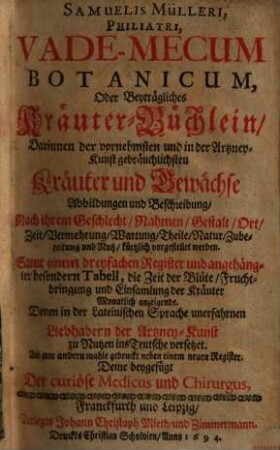 SAMUELIS MÜLLERI,
PHILIATRI,
VADE-MECUM
BOTANICUM,
Oder Beyträgliches
Kräuter-Büchlein/
Darinnen der vornehmsten und in der Artzney-
Kunst gebräuchlichsten
Kräuter und Gewächse
Abbildungen und Beschreibung/
Nach ihrem Geschlecht/Nahmen/Gestalt/Ort/
Zeit/Vermehrung/Wartung/Theile/Natur/Zube-
reitung und Nutz/ kürtzlich vorgestellet werden.
Samt einem dreyfachen Register und angehäng-
ter besondern Tabell, die Zeit der Blüte/Frucht-
bringung und Einsamlung der Kräuter
Monatlich anzeigende.
Denen in der Lateinischen Sprache unerfahrnen
Liebhabern der Artzney-Kunst
zu Nutzen ins Teutsche versetzet.
Itzt zum andern mahle gedruckt neben einem neuen Register.
Deme beygefügt
Der curiöse Medicus und Chirurgus,
Franckfurth und Leipzig/
Verlegts Johann Christoph Mieth/und Zimmermann.
Druckts Christian Scholvien/Anno 1694.